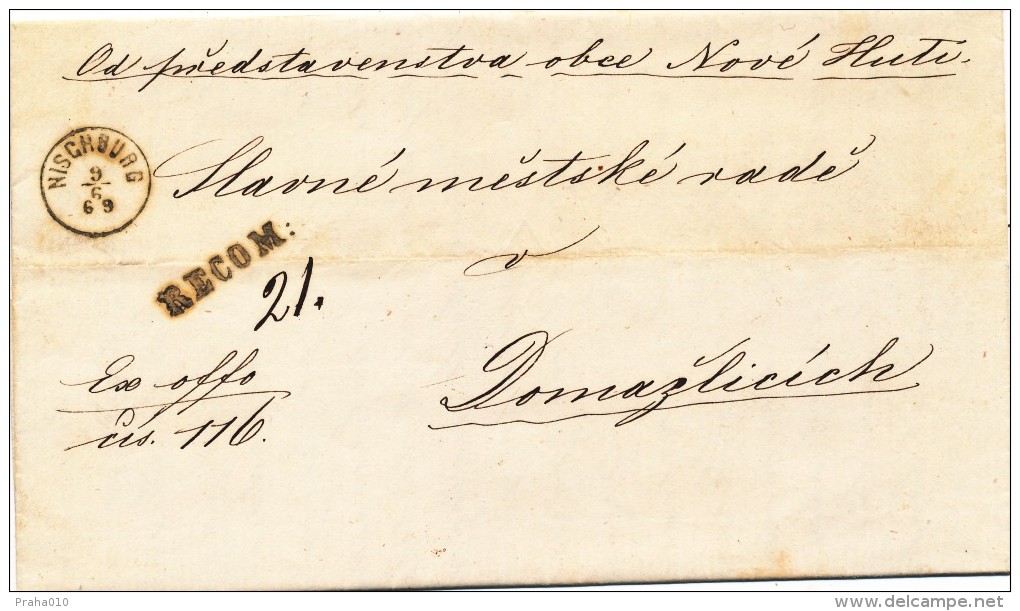 Od představenstva obce Nové Huti.
NISCHBURG
9
6
69
Slavné městské radě
RECOM:
v
21.
Domažlicích
Ex offo
čís. 116.
Praha010
delcampe.net